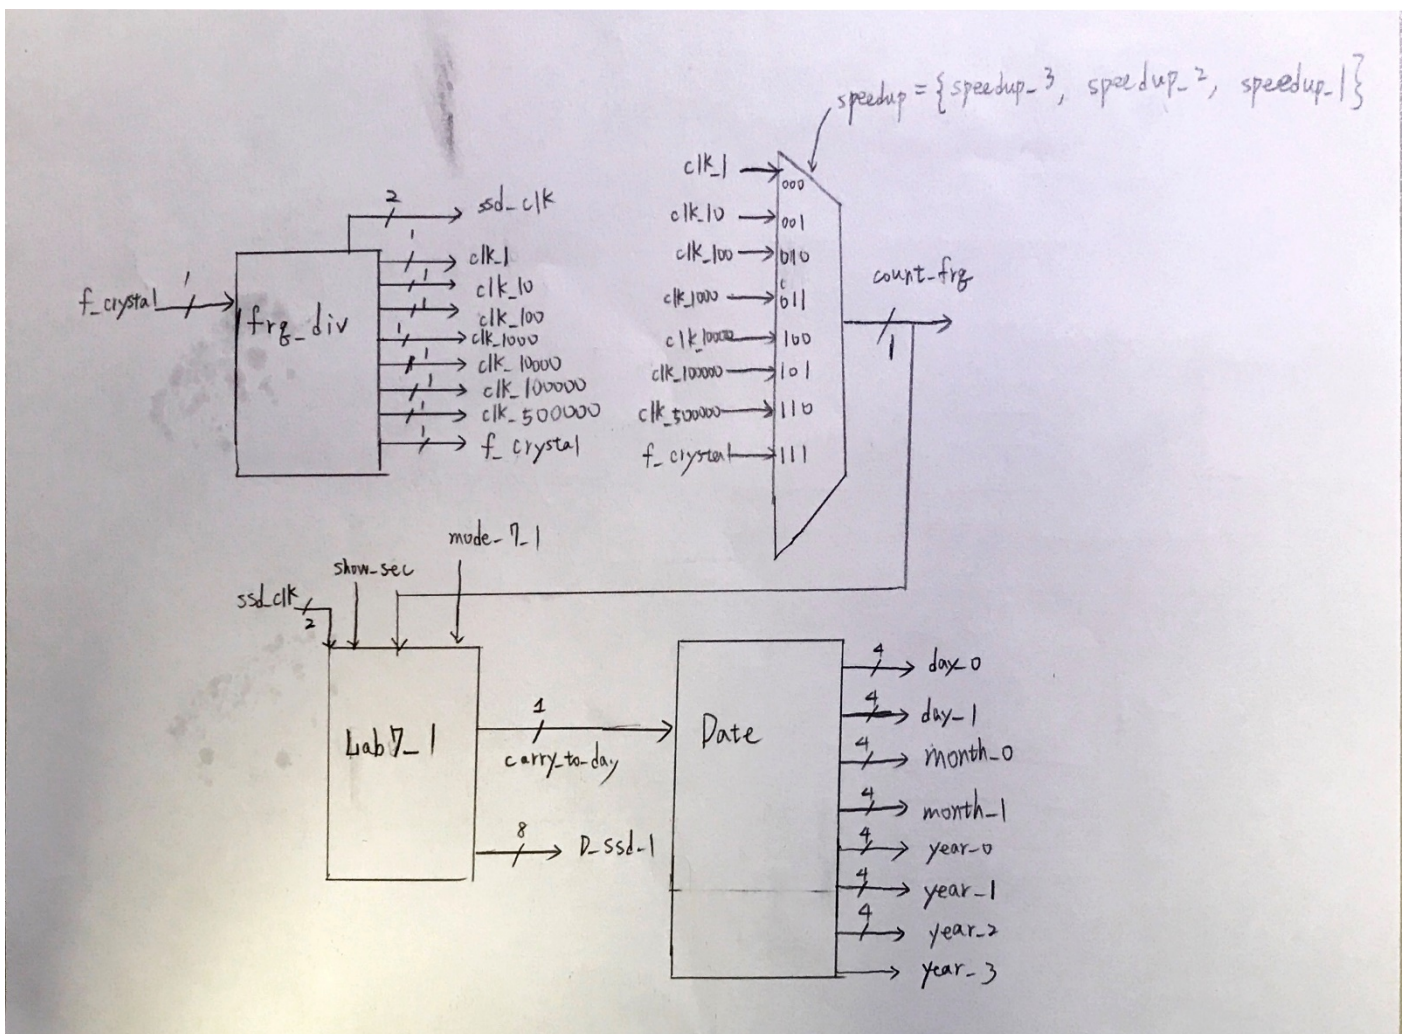 speedup = {speedup_3, speedup_2, speedup_1}
2
ssd_clk
1
f_crystal
frq_div
1
clk_1
1
clk_10
1
clk_100
1
clk_1000
1
clk_10000
1
clk_100000
1
clk_500000
1
f_crystal
clk_1
000
clk_10
001
clk_100
010
clk_1000
011
clk_10000
100
clk_100000
101
clk_500000
110
f_crystal
111
count_frq
1
mode_7_1
show_sec
ssd_clk
2
Lab7_1
1
carry_to_day
8
D_ssd_1
Date
4
day_0
4
day_1
4
month_0
4
month_1
4
year_0
4
year_1
4
year_2
year_3